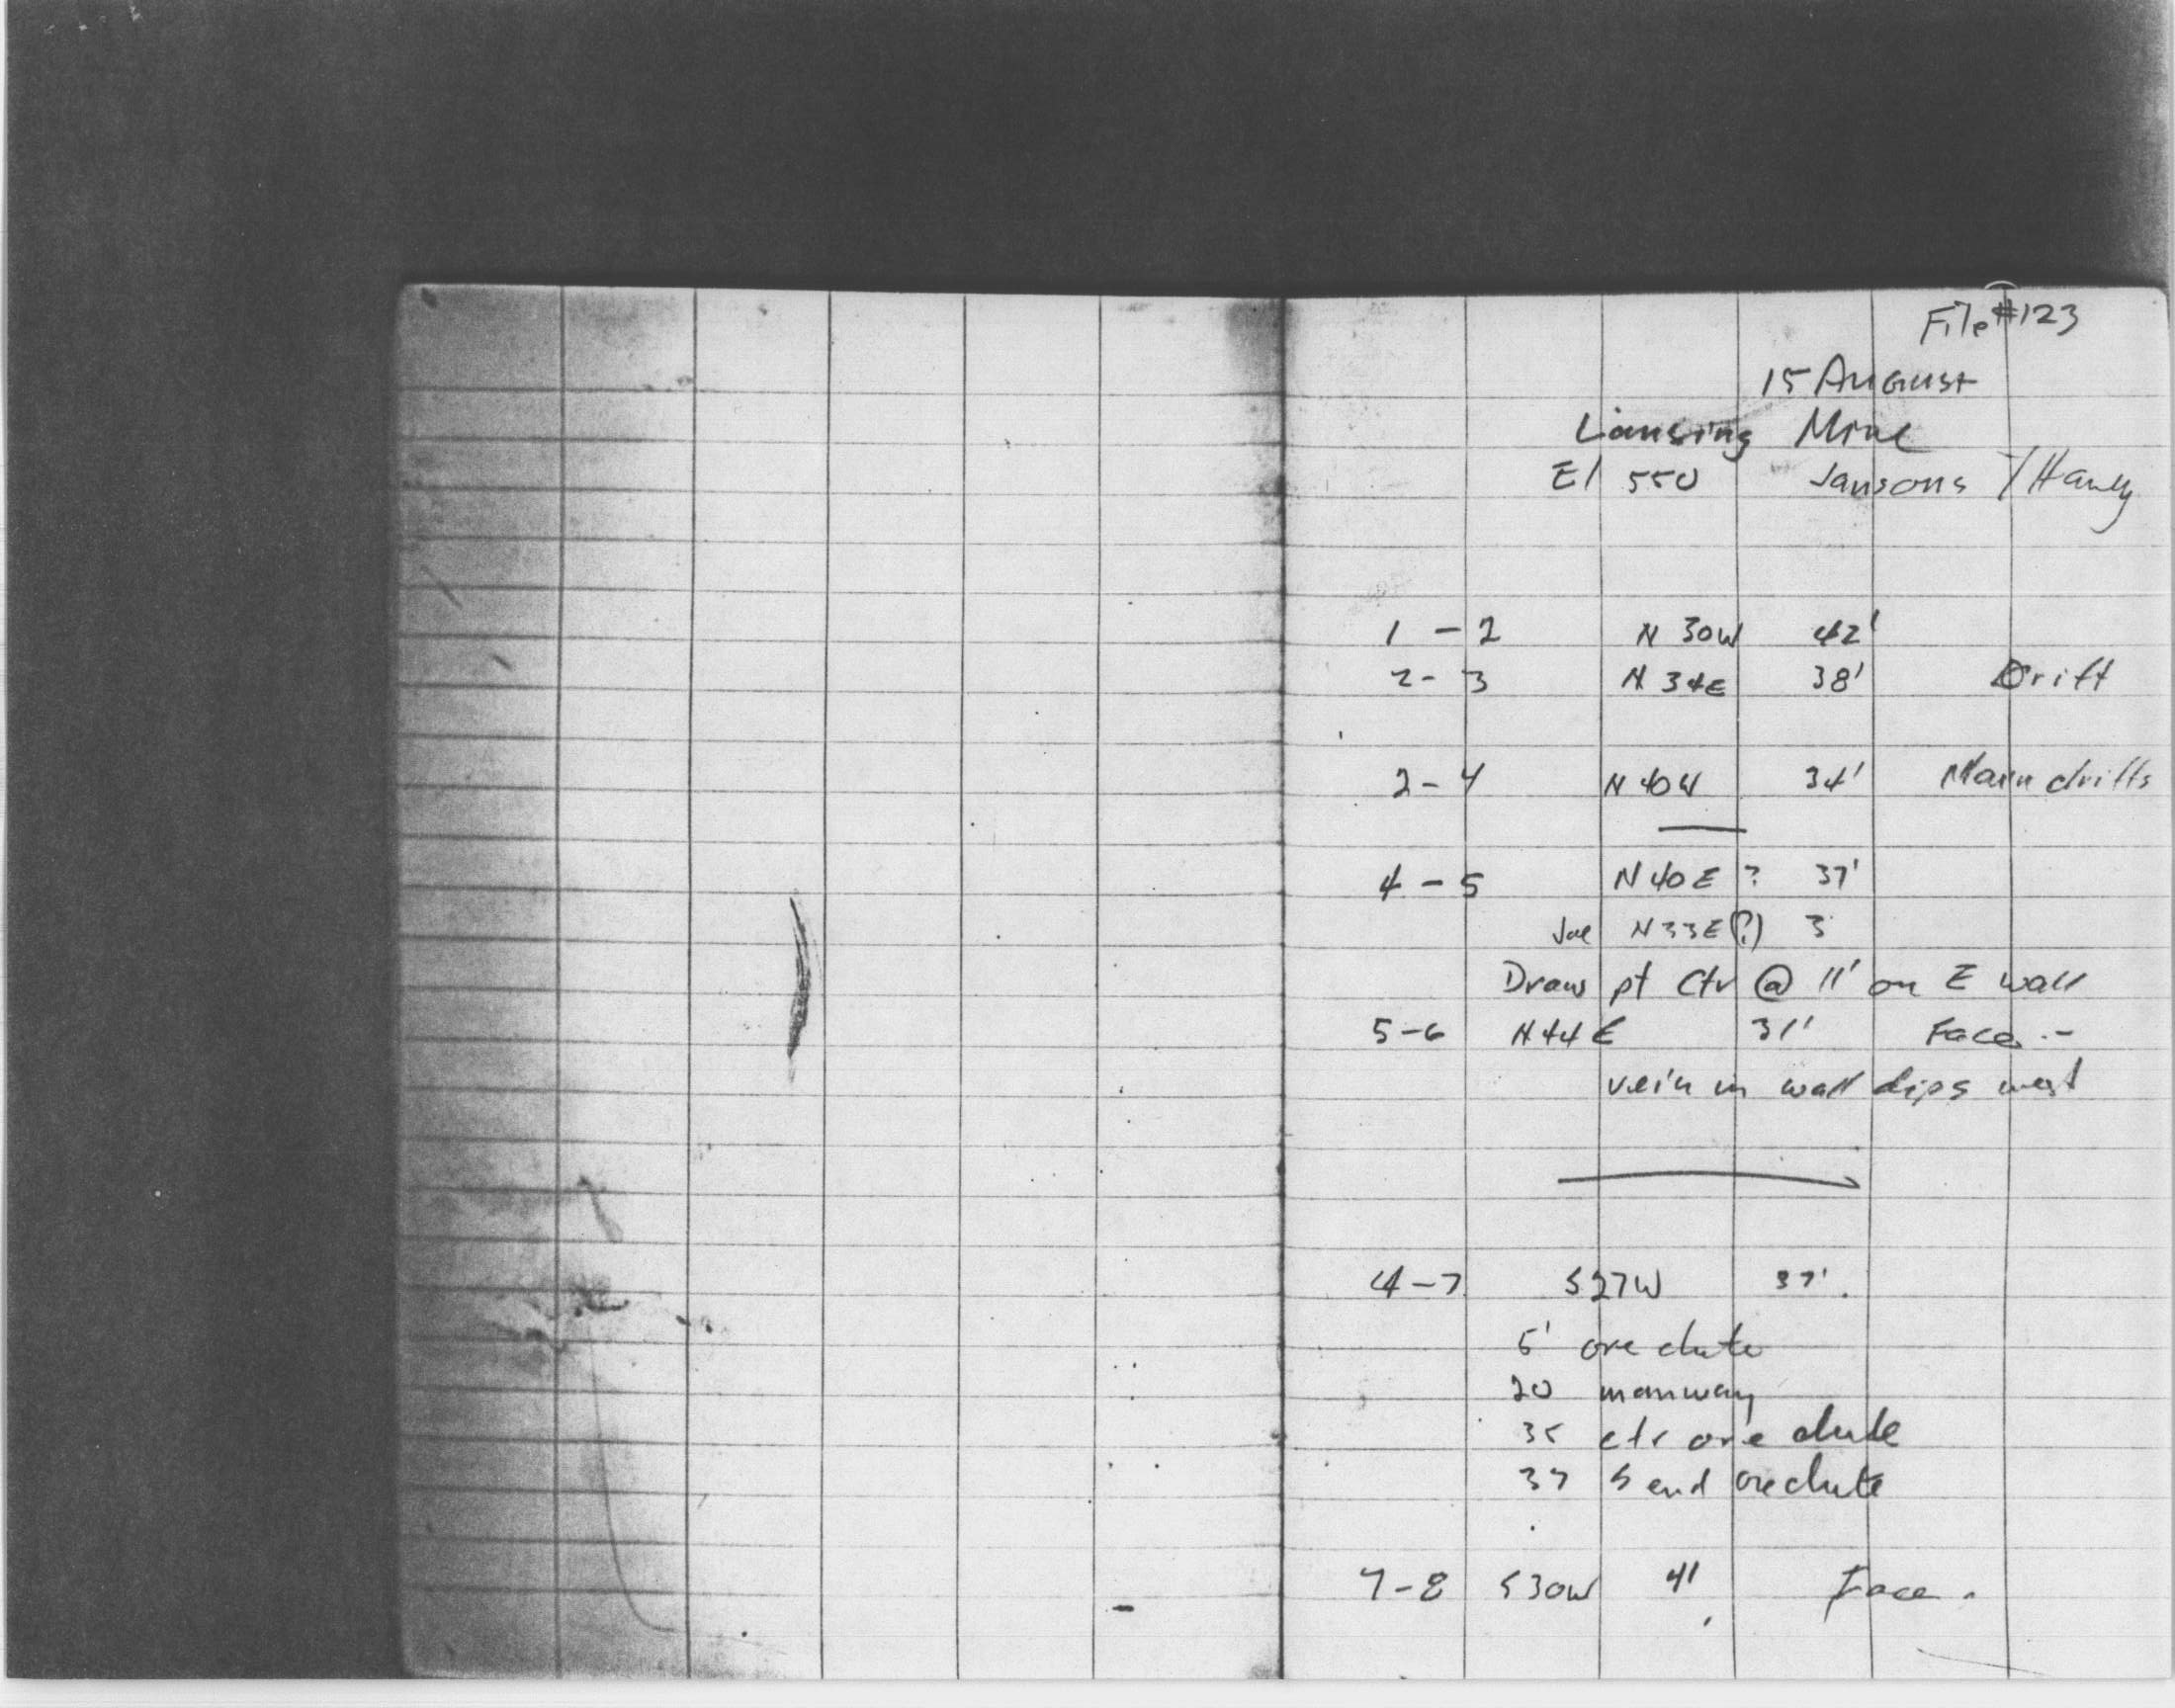 File #123
15 August
Lansing Mine
El 550 Jansons / Hawly
1 - 2 N 30W 42'
2 - 3 N 34E 38' Drift
2 - 4 N 40W 34' Main drifts
4 - 5 N 40 E ? 37'
Joe N33E(?) 3
Draw pt Ctr @ 11' on E wall
5-6 N44E 31' Face -
vein in wall dips west
4-7 S27W 37'
5' ore chute
20 manway
35 ctr ore chute
37 S end ore chute
7-8 S30W 41 Face.